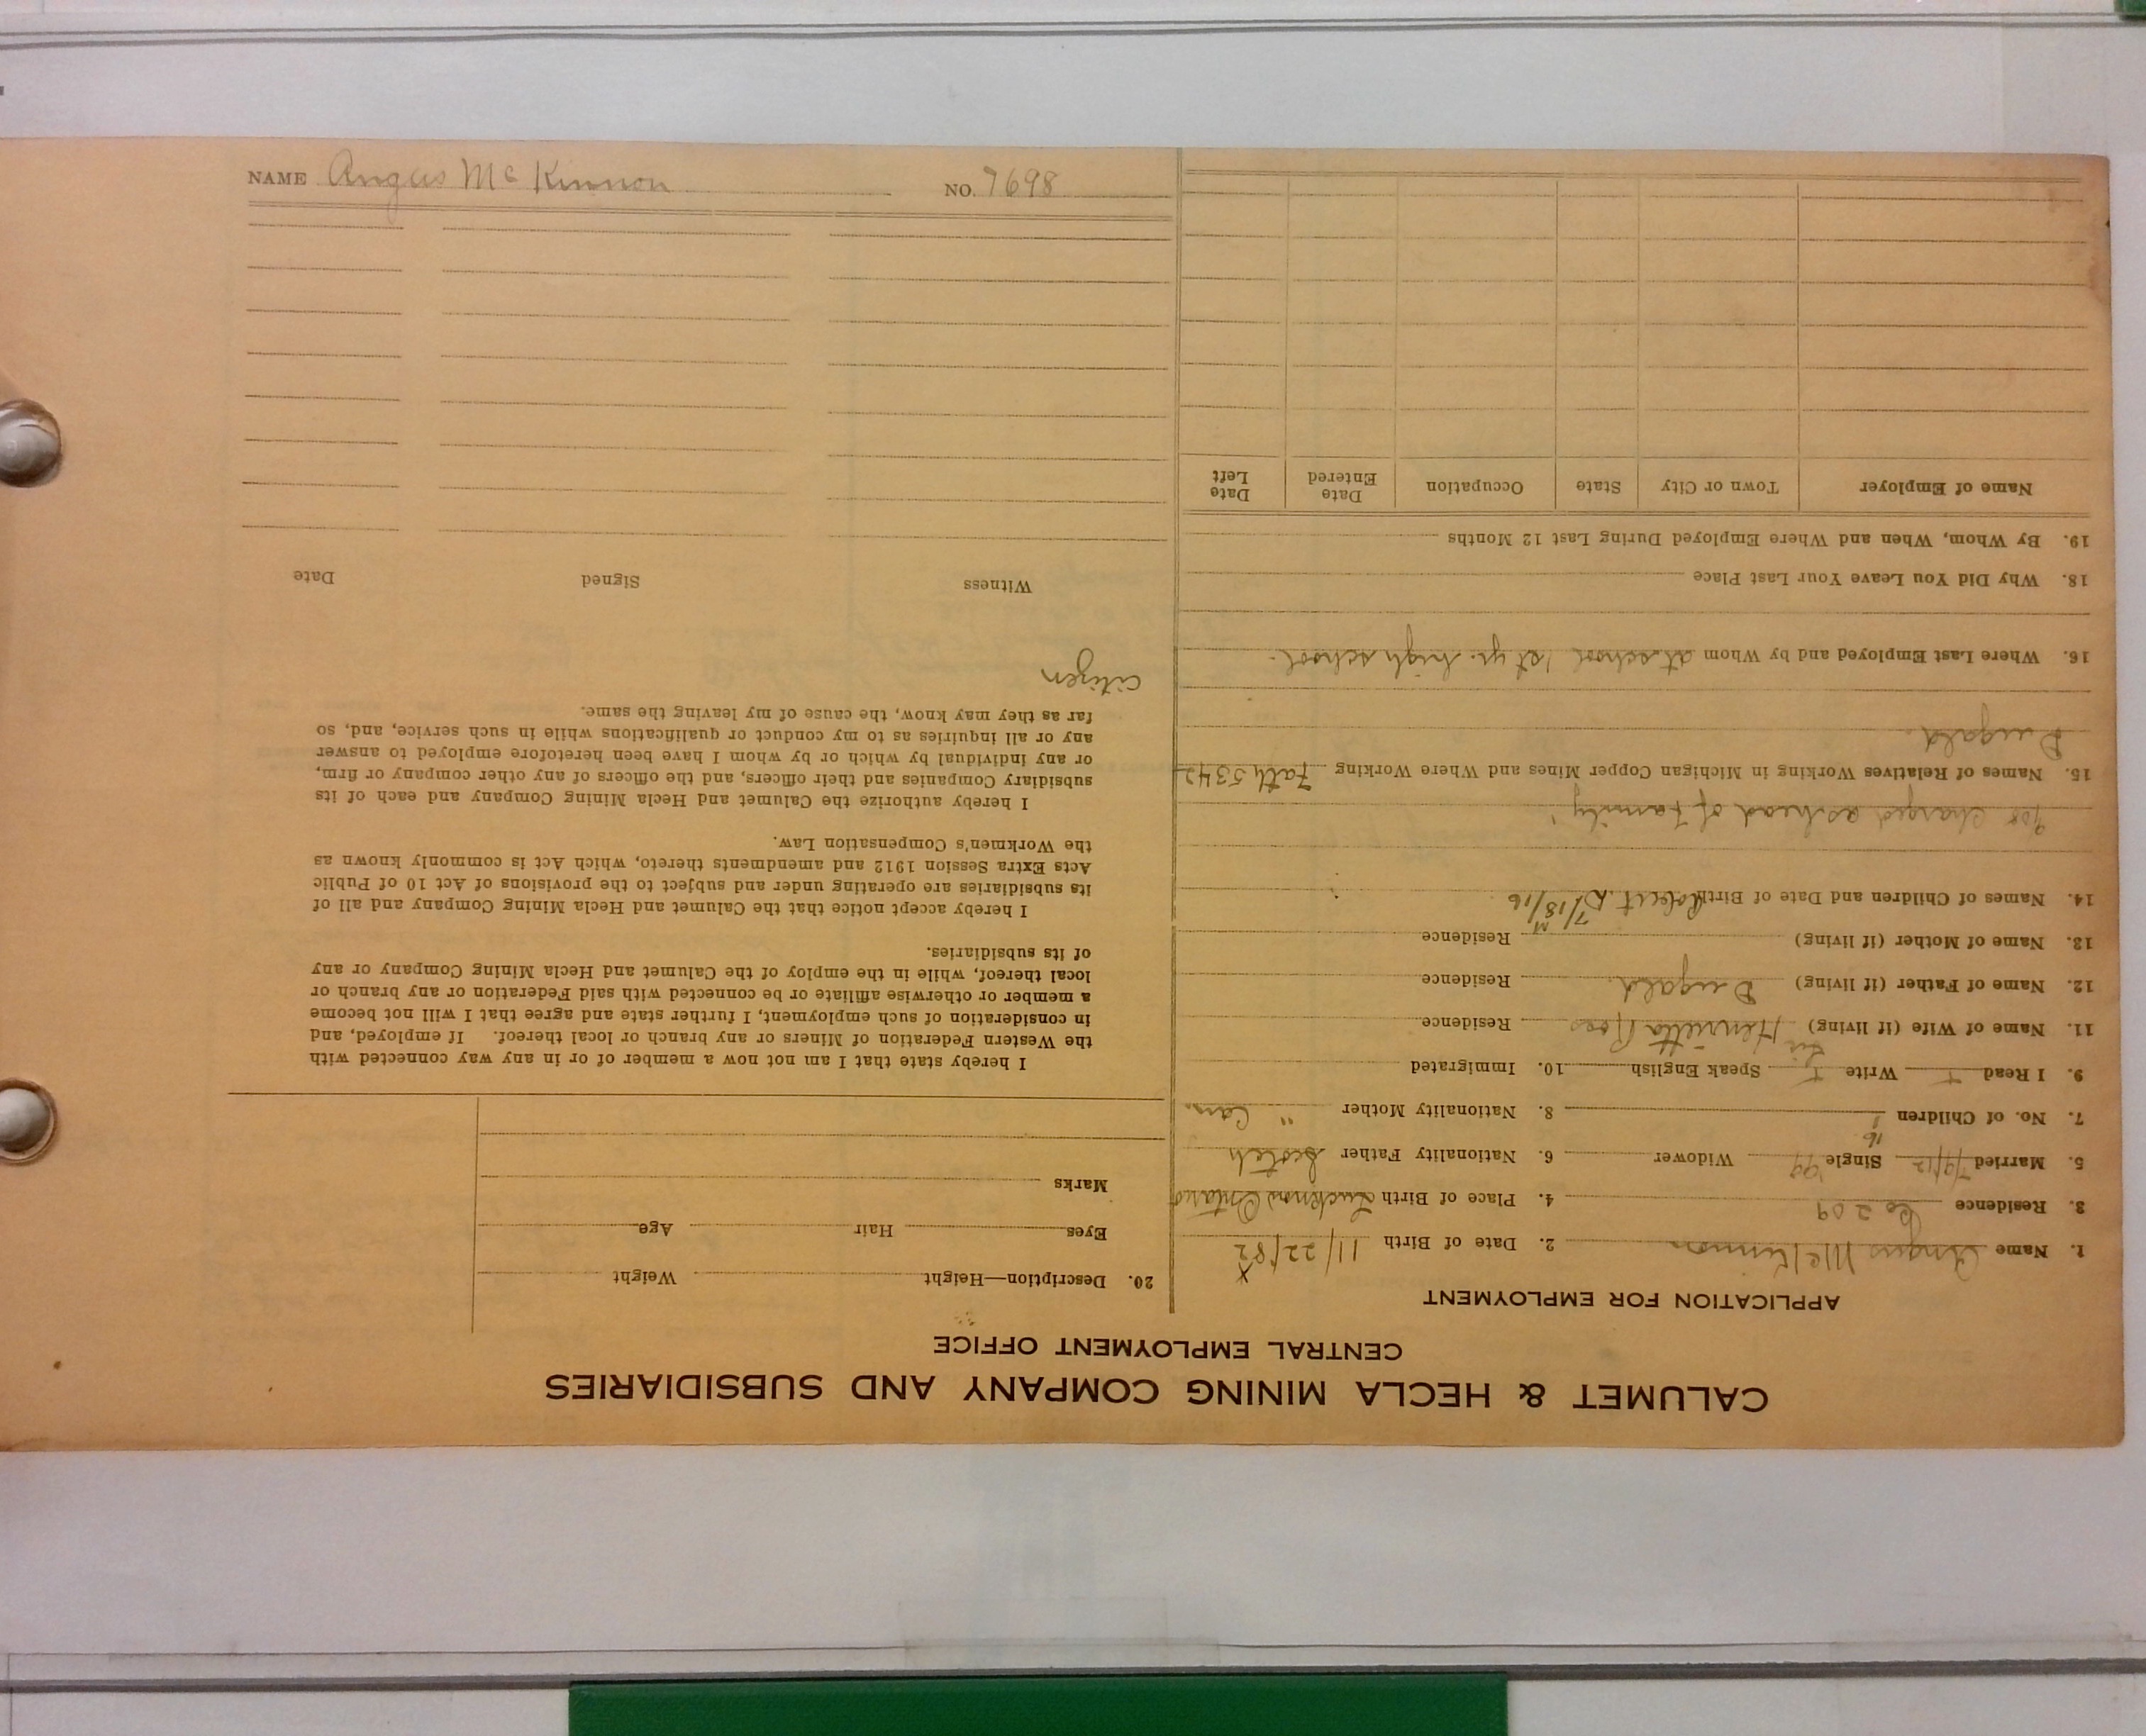 CALUMET & HECLA MINING COMPANY AND SUBSIDIARIES
CENTRAL EMPLOYMENT OFFICE
APPLICATION FOR EMPLOYMENT
1. Name Angus McKinnon 2. Date of Birth 11/22/82
x
3. Residence Co 209 4. Place of Birth Lucknow Ontario
5. Married 7/9/12 Single Widower 6. Nationality Father Scotch
16
7. No. of Children 1 8. Nationality Mother " Can.
9. I Read Write Speak English 10. Immigrated
11. Name of Wife (if living) Henrietta Ross Residence
12. Name of Father (if living) Dugald. Residence
13. Name of Mother (if living) Residence
14. Names of Children and Date of Birth Robert D. 7/18/16
M
908 charged as head of Family
15. Names of Relatives Working in Michigan Copper Mines and Where Working Fath 5342
Dugald.
16. Where Last Employed and by Whom at school 1st yr. high school.
18. Why Did You Leave Your Last Place
19. By Whom, When and Where Employed During Last 12 Months
Name of Employer Town or City State Occupation Date Entered Date Left
20. Description—Height Weight
Eyes Hair Age
Marks
I hereby state that I am not now a member of or in any way connected with
the Western Federation of Miners or any branch or local thereof. If employed, and
in consideration of such employment, I further state and agree that I will not become
a member or otherwise affiliate or be connected with said Federation or any branch or
local thereof, while in the employ of the Calumet and Hecla Mining Company or any
of its subsidiaries.
I hereby accept notice that the Calumet and Hecla Mining Company and all of
its subsidiaries are operating under and subject to the provisions of Act 10 of Public
Acts Extra Session 1912 and amendments thereto, which Act is commonly known as
the Workmen's Compensation Law.
I hereby authorize the Calumet and Hecla Mining Company and each of its
subsidiary Companies and their officers, and the officers of any other company or firm,
or any individual by which or by whom I have been heretofore employed to answer
any or all inquiries as to my conduct or qualifications while in such service, and, so
far as they may know, the cause of my leaving the same.
citizen
Witness Signed Date
NAME Angus McKinnon NO. 7698